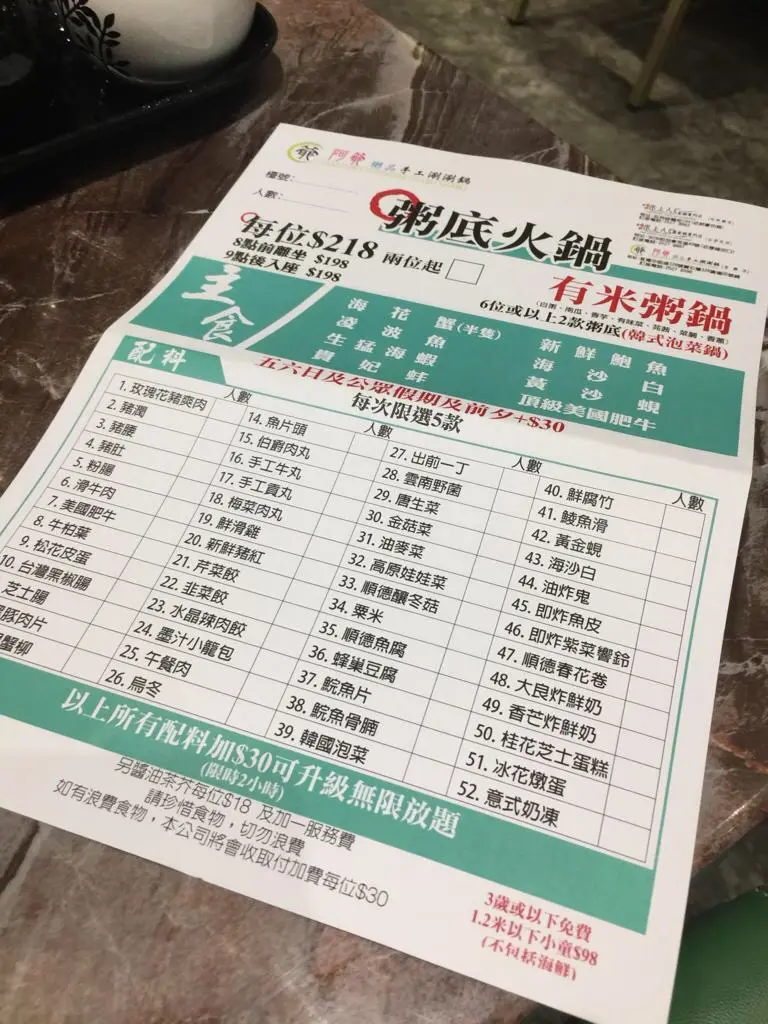 阿爺 樕品手工涮涮鍋
檯號：
人數：
粥底火鍋
每位$218 兩位起
8點前離坐 $198
9點後入座 $198
有米粥鍋
(白粥、南瓜、香芋、有味菜、芫茜、菜脯、香蔥)
6位或以上2款粥底(韓式泡菜鍋)
主食
海花蟹(半隻)
凌波魚
生猛海蝦
貴妃蚌
新鮮鮑魚
海沙白
黃沙蜆
頂級美國肥牛
五六日及公眾假期及前夕+$30
配料
每次限選5款
人數
1. 玫瑰花豬爽肉
2. 豬潤
3. 豬腰
4. 豬肚
5. 粉腸
6. 滑牛肉
7. 美國肥牛
8. 牛柏葉
9. 松花皮蛋
10. 台灣黑椒腸
芝士腸
豚肉片
蟹柳
人數
14. 魚片頭
15. 伯爵肉丸
16. 手工牛丸
17. 手工貢丸
18. 梅菜肉丸
19. 鮮滑雞
20. 新鮮豬紅
21. 芹菜餃
22. 韭菜餃
23. 水晶辣肉餃
24. 墨汁小籠包
25. 午餐肉
26. 烏冬
人數
27. 出前一丁
28. 雲南野菌
29. 唐生菜
30. 金菇菜
31. 油麥菜
32. 高原娃娃菜
33. 順德釀冬菇
34. 粟米
35. 順德魚腐
36. 蜂巢豆腐
37. 鯇魚片
38. 鯇魚骨腩
39. 韓國泡菜
人數
40. 鮮腐竹
41. 鯪魚滑
42. 黃金蜆
43. 海沙白
44. 油炸鬼
45. 即炸魚皮
46. 即炸紫菜響鈴
47. 順德春花卷
48. 大良炸鮮奶
49. 香芒炸鮮奶
50. 桂花芝士蛋糕
51. 冰花燉蛋
52. 意式奶凍
以上所有配料加$30可升級無限放題
(限時2小時)
另醬油茶芥每位$18 及加一服務費
請珍惜食物，切勿浪費
如有浪費食物，本公司將會收取付加費每位$30
3歲或以下免費
1.2米以下小童$98
(不包括海鮮)